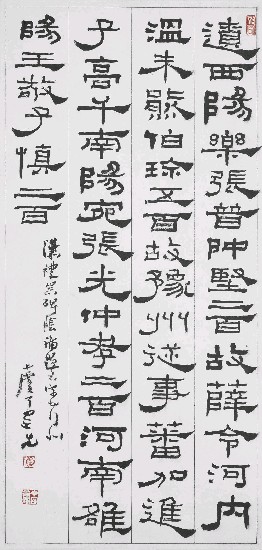 遺西陽樂張普仲堅二百故薛令河內
溫朱熊伯珍五百故豫州從事蕃加進
子高千南陽宛張光仲孝二百河南雒
陽王敬子慎二百
漢禮器碑陰